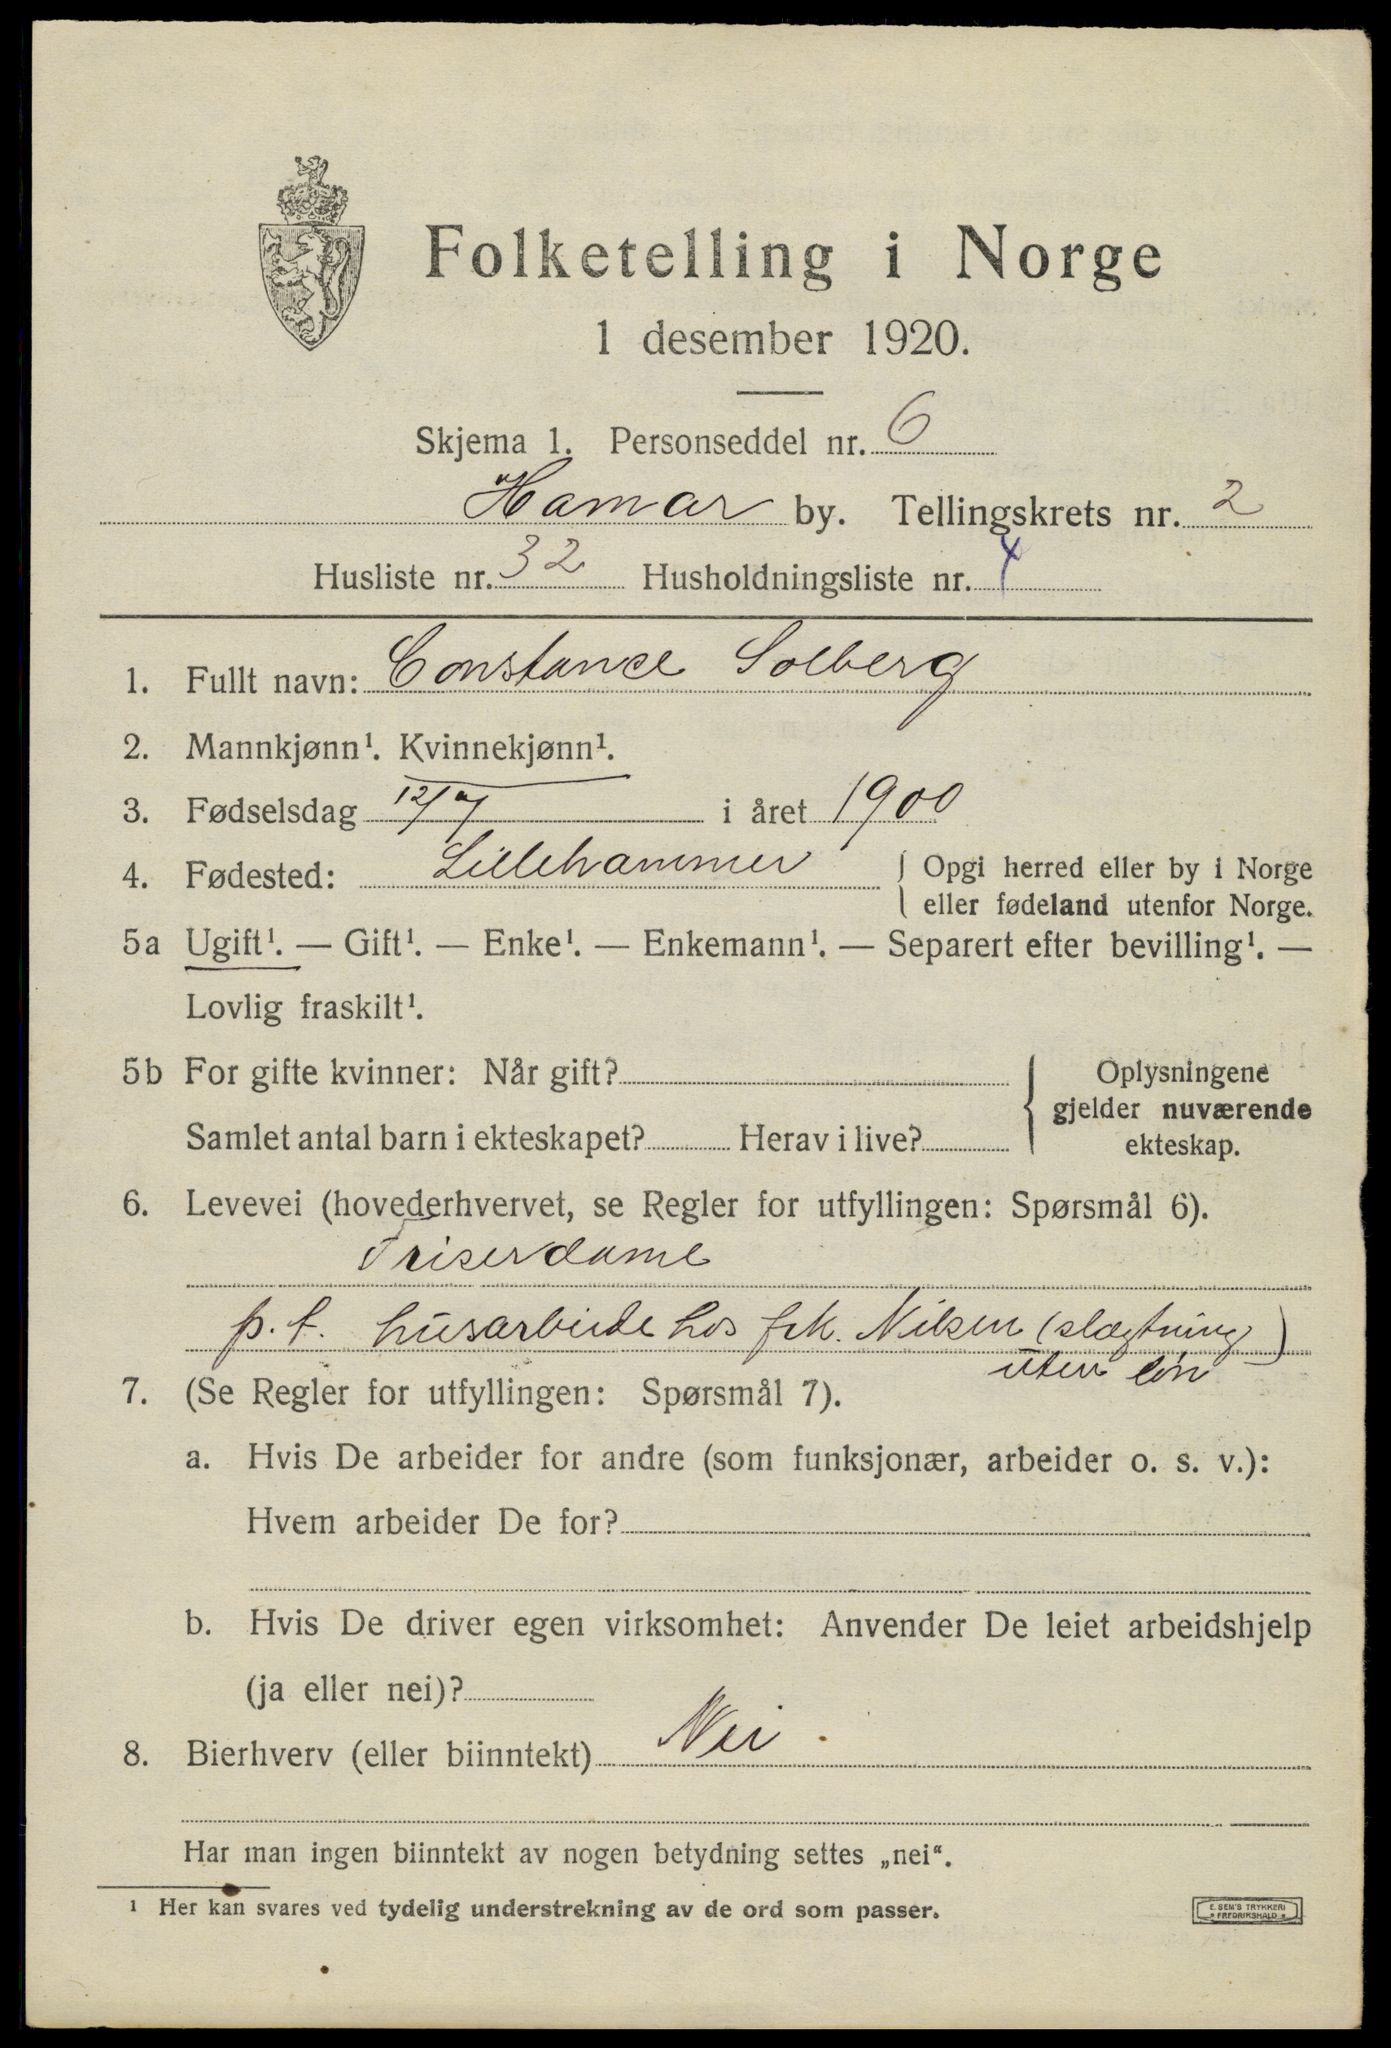 Folketelling i Norge
1 desember 1920.
Skjema 1. Personseddel nr. 6
Hamar by. Tellingskrets nr. 2
Husliste nr. 32 Husholdningsliste nr. 4
1. Fullt navn: Constance Solberg
2. Mannkjønn¹. Kvinnekjønn¹.
3. Fødselsdag 12/7 i året 1900
4. Fødested: Lillehammer { Opgi herred eller by i Norge
eller fødeland utenfor Norge.
5a Ugift¹. — Gift¹. — Enke¹. — Enkemann¹. — Separert efter bevilling¹. —
Lovlig fraskilt¹.
5b For gifte kvinner: Når gift?
Samlet antal barn i ekteskapet? Herav i live?
{ Oplysningene
gjelder nuværende
ekteskap.
6. Levevei (hovederhvervet, se Regler for utfyllingen: Spørsmål 6).
Friserdame
p.t. husarbeide hos frk. Nilsen (slægtning)
uten løn
7. (Se Regler for utfyllingen: Spørsmål 7).
a. Hvis De arbeider for andre (som funksjonær, arbeider o. s. v.):
Hvem arbeider De for?
b. Hvis De driver egen virksomhet: Anvender De leiet arbeidshjelp
(ja eller nei)?
8. Bierhverv (eller biinntekt) Nei.
Har man ingen biinntekt av nogen betydning settes „nei“.
¹ Her kan svares ved tydelig understrekning av de ord som passer.
E. SEM'S TRYKKERI
• FREDRIKSHALD •